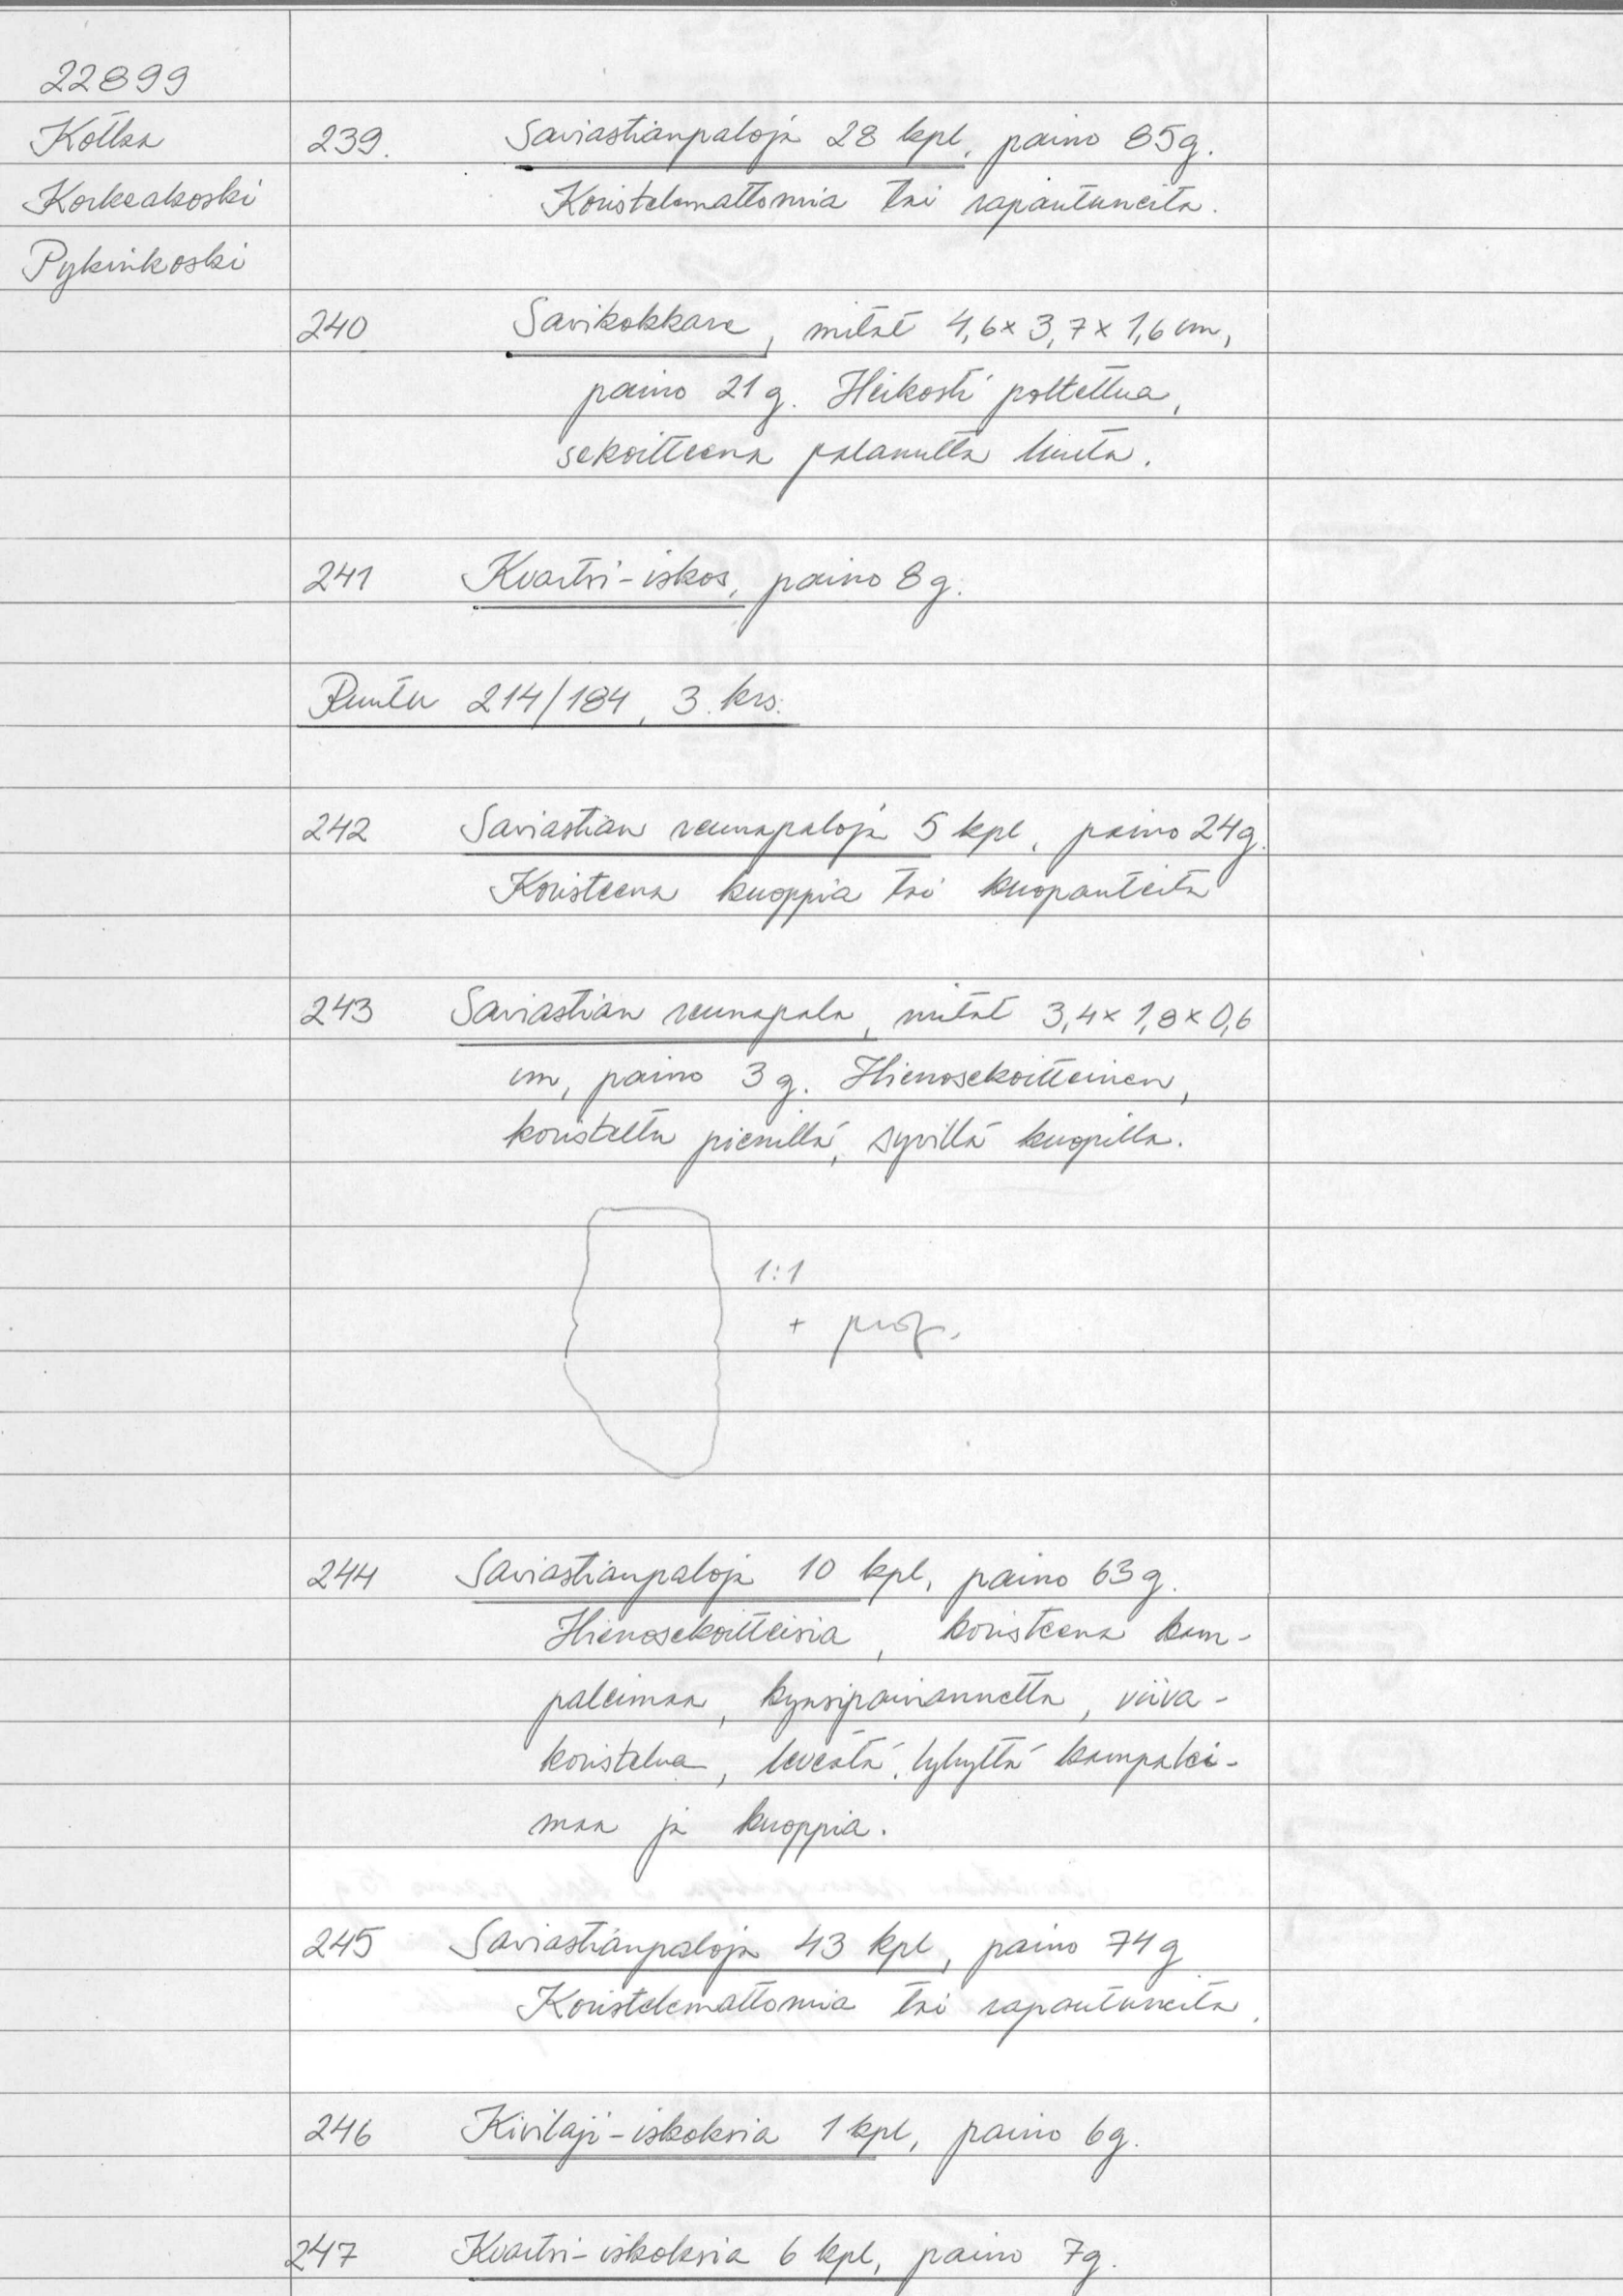 22899
Kotka
Korkeakoski
Pykinkoski
239. Saviastianpaloja 28 kpl, paino 85g.
Koristelemattomia tai rapautuneita.
240 Savikokkare, mitat 4,6 x 3,7 x 1,6 cm,
paino 21 g. Heikosti poltettua,
sekoitteena palanutta luuta.
241 Kvartsi-iskos, paino 8 g.
Ruutu 214/184, 3. krs.
242 Saviastian reunapaloja 5 kpl, paino 24g.
Koristeena kuoppia tai kuopanteita
243 Saviastian reunapala, mitat 3,4 x 1,8 x 0,6
cm, paino 3 g. Hienosekoitteinen,
koristeltu pienillä, syvillä kuopilla.
1:1
+ prof.
244 Saviastianpaloja 10 kpl, paino 63 g.
Hienosekoitteisia, koristeena kam-
paleimaa, kynsipainannetta, viiva-
koristelua, leveätä, lyhyttä kampalei-
maa ja kuoppia.
245 Saviastianpaloja 43 kpl, paino 74 g
Koristelemattomia tai rapautuneita.
246 Kivilaji-iskoksia 1 kpl, paino 6g.
247 Kvartsi-iskoksia 6 kpl, paino 7g.